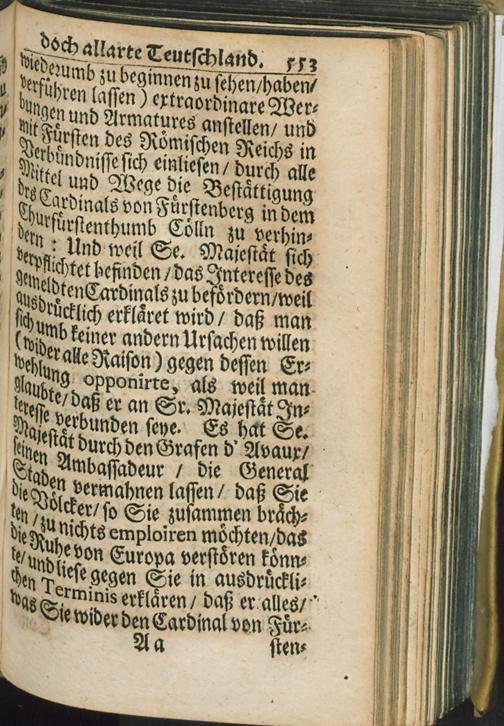 doch allarte Teutschland. 553
wiederumb zu beginnen zu sehen/haben/
verführen lassen) extraordinare Wer-
bungen und Armatures anstellen/ und
mit Fürsten des Römischen Reichs in
Verbündnisse sich einliesen/ durch alle
Mittel und Wege die Bestättigung
des Cardinals von Fürstenberg in dem
Churfürstenthumb Cölln zu verhin-
dern: Und weil Se. Majestät sich
verpflichtet befinden/das Interesse des
gemeldten Cardinals zu befördern/weil
ausdrücklich erkläret wird/ daß man
sich umb keiner andern Ursachen willen
(wider alle Raison) gegen dessen Er-
wehlung opponirte, als weil man
glaubte/ daß er an Sr. Majestät In-
teresse verbunden seye. Es hat Se.
Majestät durch den Grafen d' Avaux/
seinen Ambassadeur / die General
Staden vermahnen lassen/ daß Sie
die Völcker/ so Sie zusammen bräch-
ten/ zu nichts emploiren möchten/das
die Ruhe von Europa verstören könn-
te/ und liese gegen Sie in ausdrückli-
chen Terminis erklären/ daß er alles/
was Sie wider den Cardinal von Für-
Aa sten-